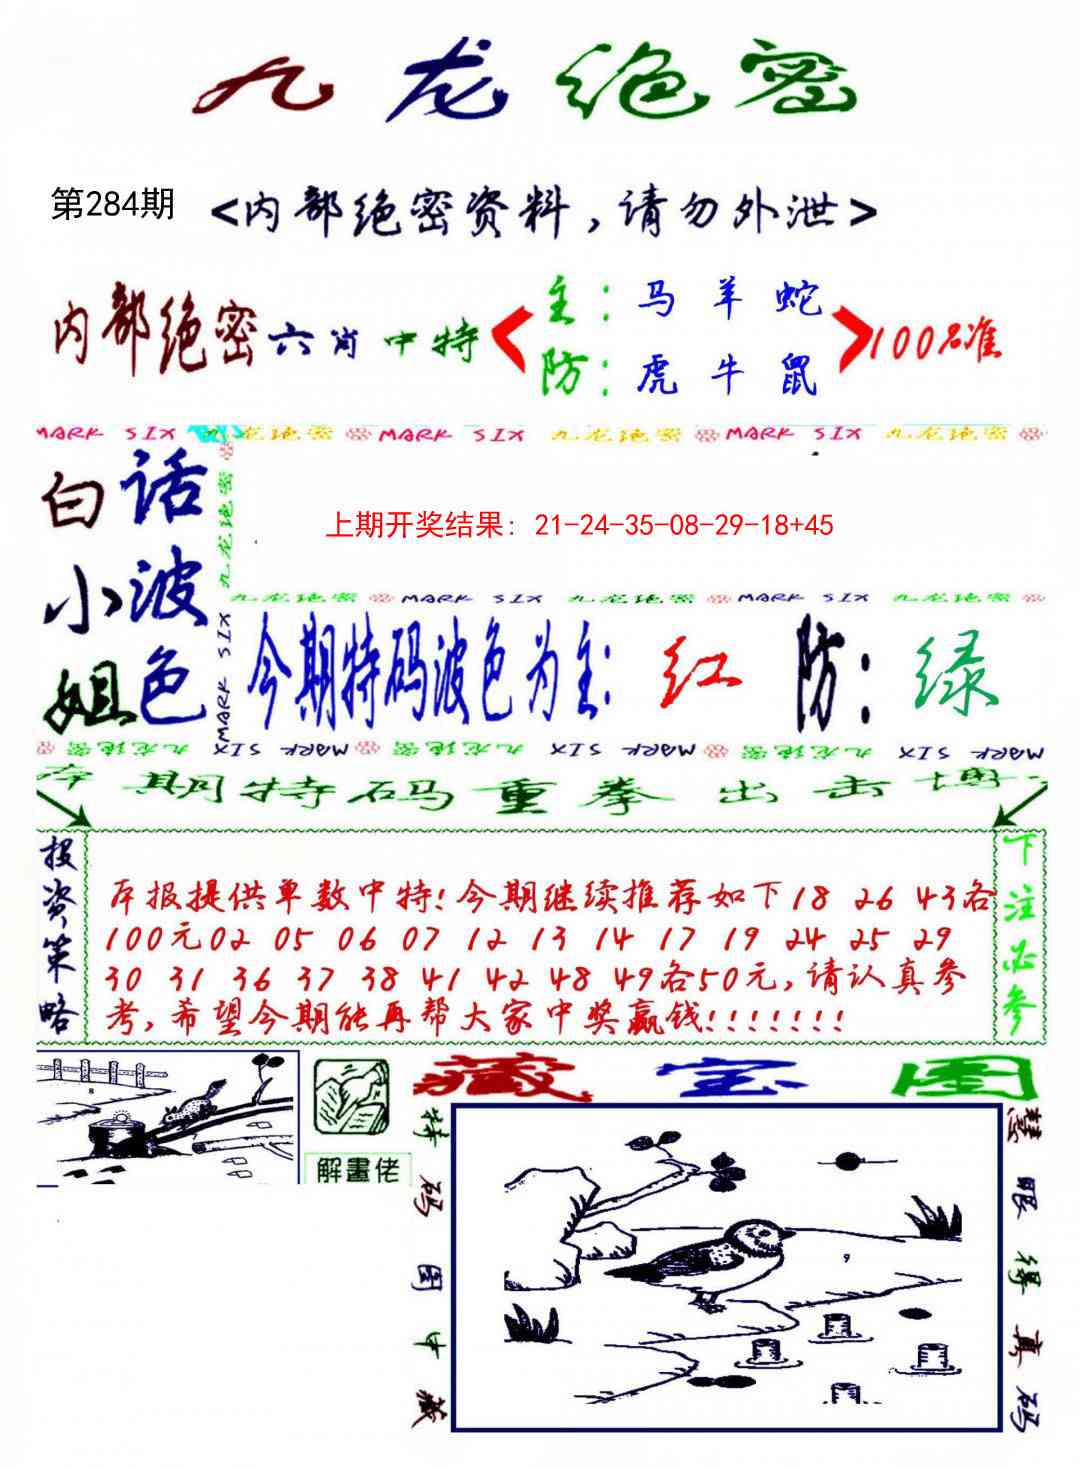 九龙绝密
第284期 <内部绝密资料,请勿外泄>
内部绝密六肖中特
主:马羊蛇
防:虎牛鼠
100%准
MARK SIX 九龙绝密 MARK SIX 九龙绝密 MARK SIX 九龙绝密
白话
小波
姐色
九龙绝密
MARK SIX
上期开奖结果: 21-24-35-08-29-18+45
九龙绝密 MARK SIX 九龙绝密 MARK SIX 九龙绝密
今期特码波色为主:红 防:绿
九龙绝密 MARK SIX 九龙绝密 MARK SIX 九龙绝密 MARK SIX
本期特码重拳出击博
投资策略
本报提供单数中特!今期继续推荐如下18 26 43各
100元02 05 06 07 12 13 14 17 19 24 25 29
30 31 36 37 38 41 42 48 49各50元,请认真参
考,希望今期能再帮大家中奖赢钱!!!!!!!
下注必参
解畫佬
藏宝图
特码图中藏
9
慧眼得真码